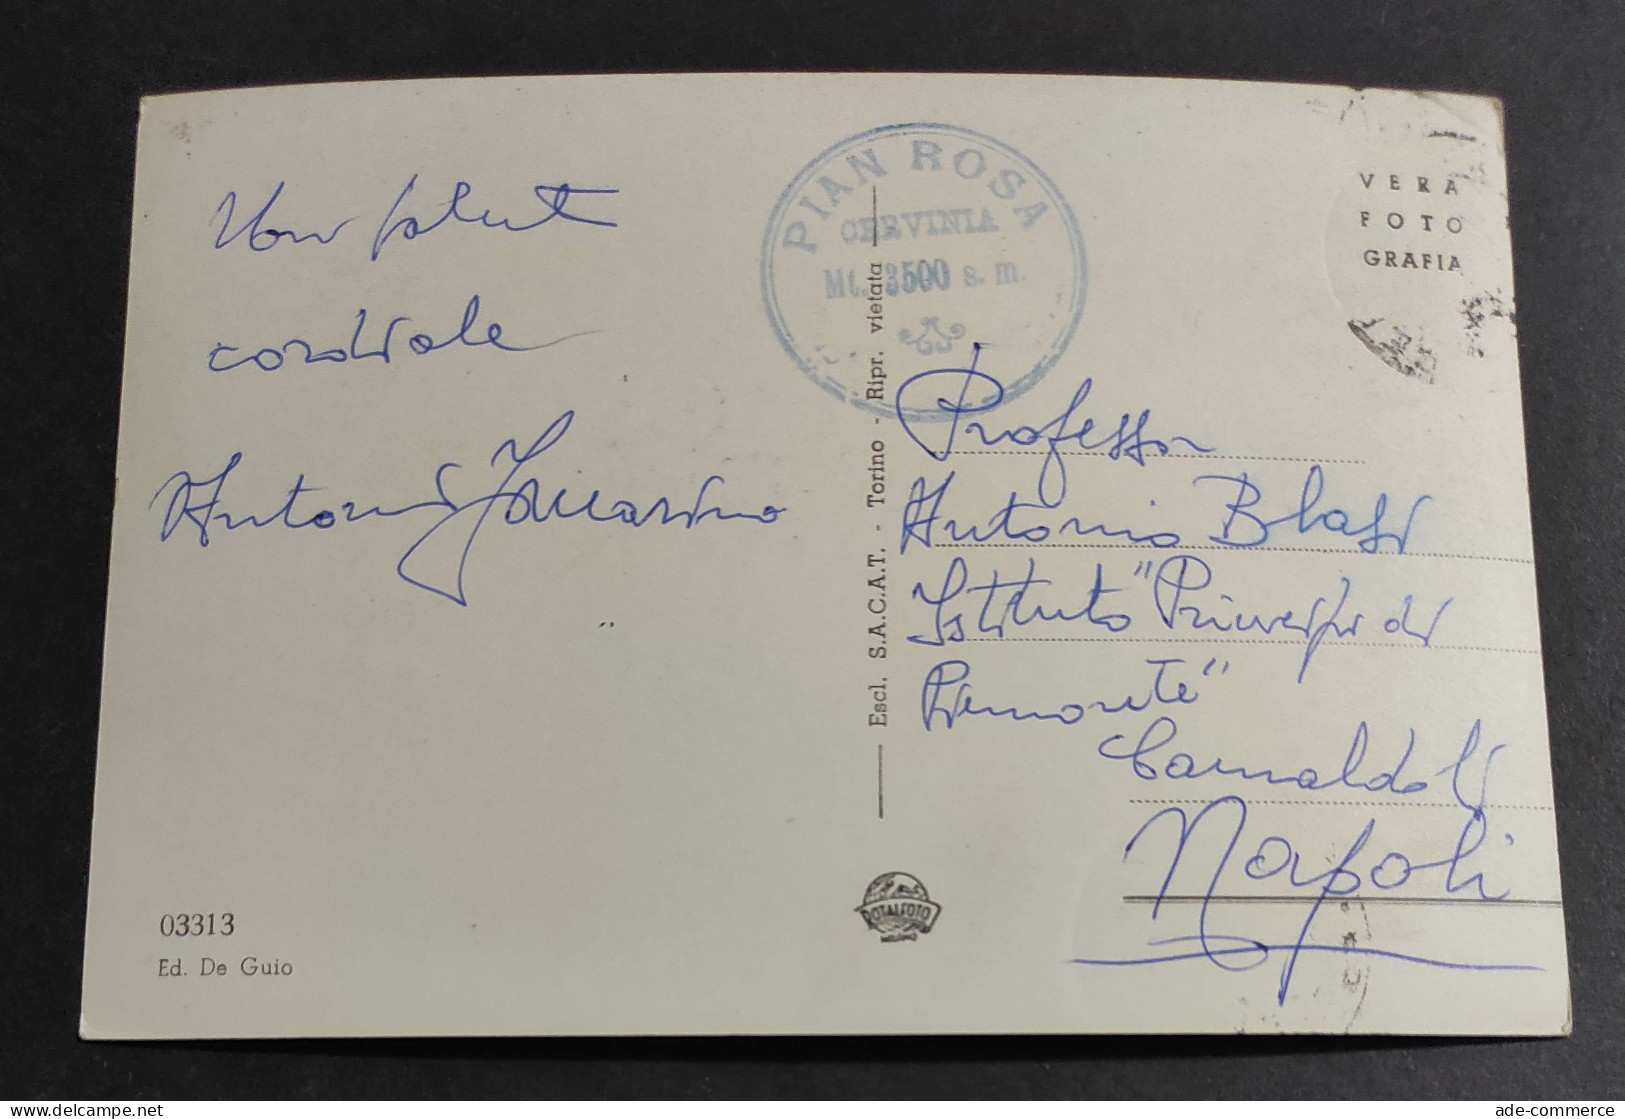 PIAN ROSA
CERVINIA
Mt. 3500 s. m.
VERA
FOTO
GRAFIA
cordiale
Antonio
Professor
Antonio Blasi
Istituto "Principi di
Piemonte"
Camaldoli
Napoli
Escl. S.A.C.A.T. - Torino - Ripr. vietata
ROTALFOTO
MILANO
03313
Ed. De Guio
ade-commerce